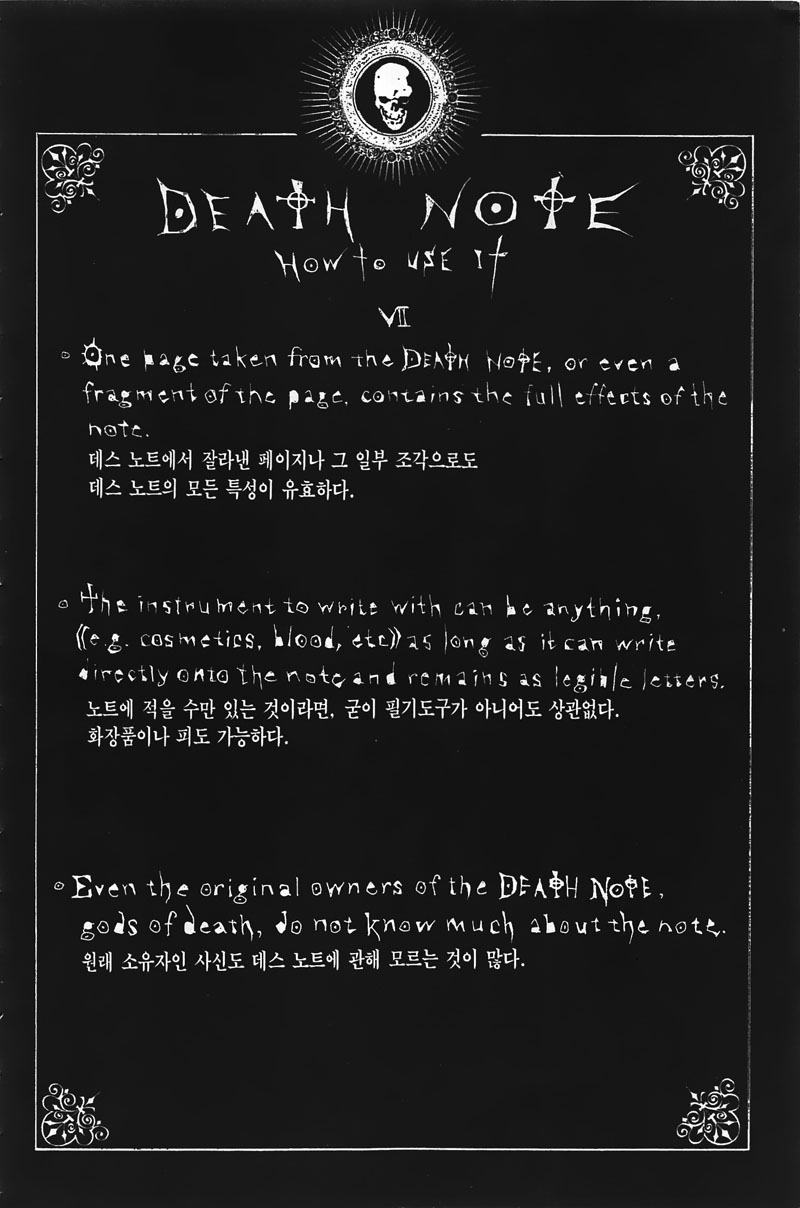 DEATH NOTE
HOW to USE It
VII
One page taken from the DEATH NOTE, or even a
fragment of the page, contains the full effects of the
note.
데스 노트에서 잘라낸 페이지나 그 일부 조각으로도
데스 노트의 모든 특성이 유효하다.
The instrument to write with can be anything,
((e.g. cosmetics, blood, etc)) as long as it can write
directly onto the note and remains as legible letters.
노트에 적을 수만 있는 것이라면, 굳이 필기도구가 아니어도 상관없다.
화장품이나 피도 가능하다.
Even the original owners of the DEATH NOTE,
gods of death, do not know much about the note.
원래 소유자인 사신도 데스 노트에 관해 모르는 것이 많다.